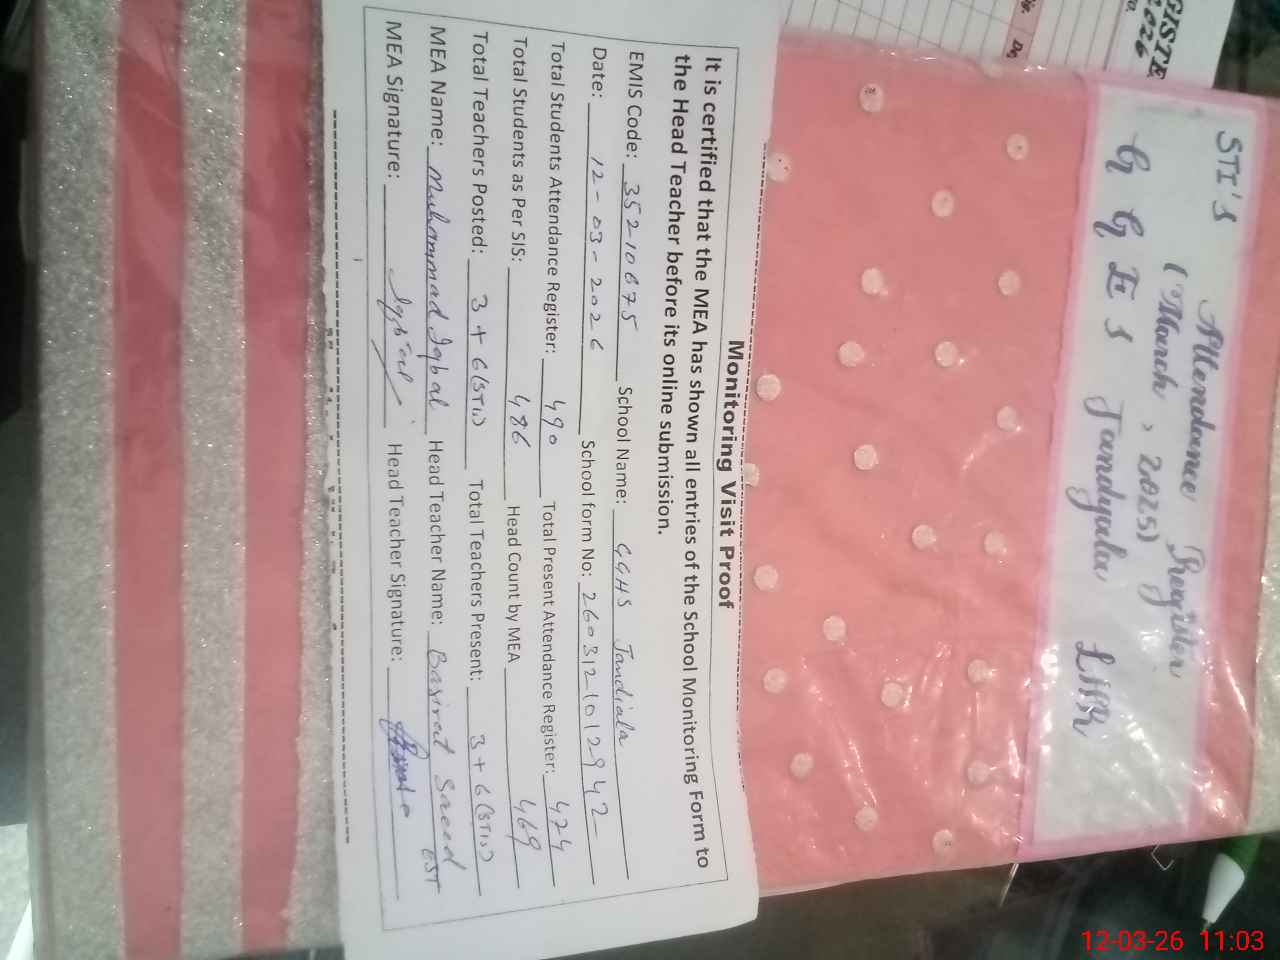 GISTE
2026
STI'S
Attendance Register
(March, 2025)
G G E S Jandyala LHR
Monitoring Visit Proof
It is certified that the MEA has shown all entries of the School Monitoring Form to
the Head Teacher before its online submission.
EMIS Code: 35210675 School Name: GGHS Jandiala
Date: 12-03-2026 School form No: 260312101 2942
Total Students Attendance Register: 490 Total Present Attendance Register: 474
Total Students as Per SIS: 486 Head Count by MEA 469
Total Teachers Posted: 3+6(STI) Total Teachers Present: 3+6(STI)
MEA Name: Muhammad Iqbal Head Teacher Name: Basirat Saeed EST
MEA Signature: Iqbal Head Teacher Signature:
12-03-26 11:03